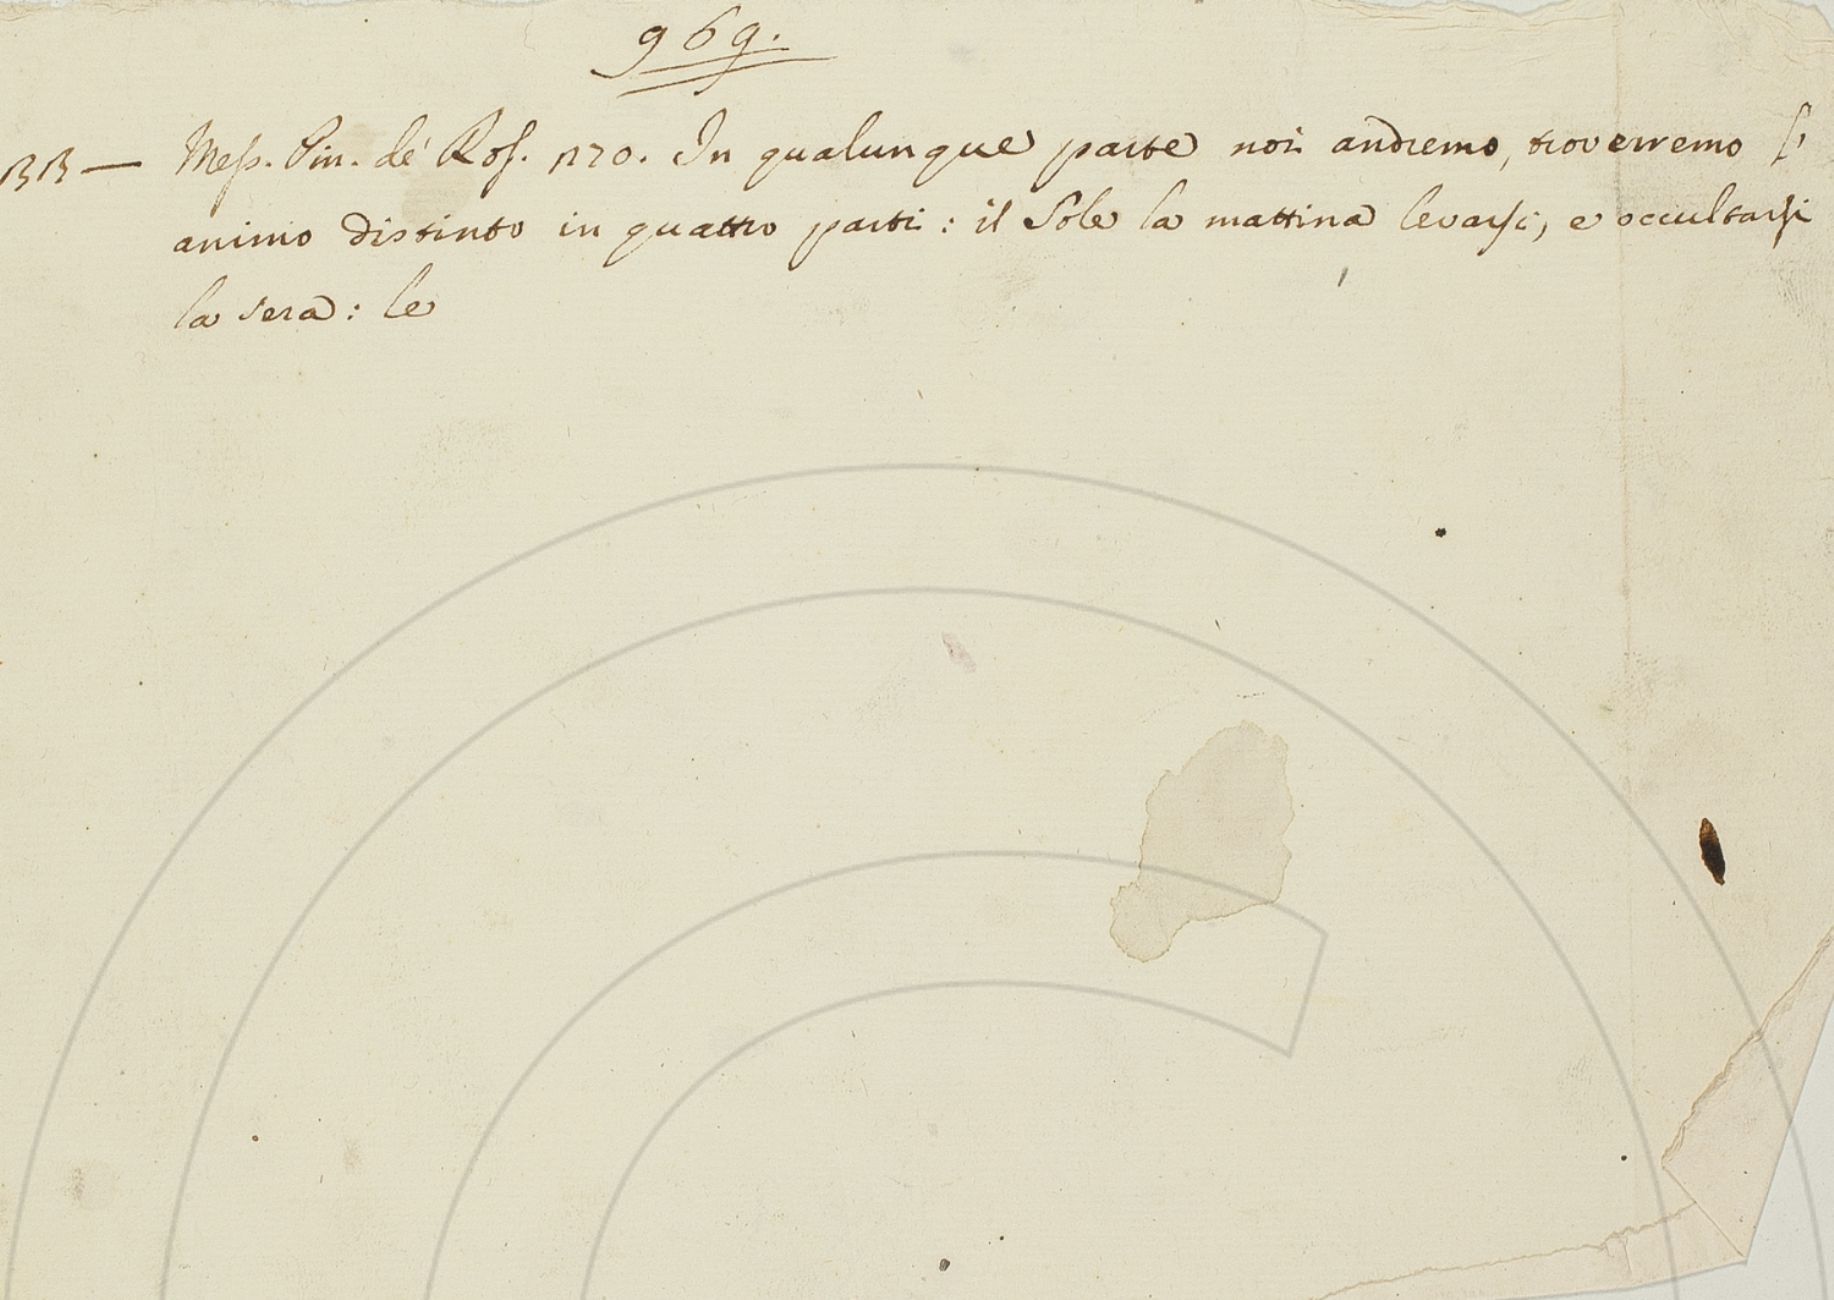 969.
BB — Mess. Pin. de' Ros. 170. In qualunque parte noi andremo, troverremo
animo distinto in quattro parti: il Sole la mattina levarsi, e occultarsi
la sera: le